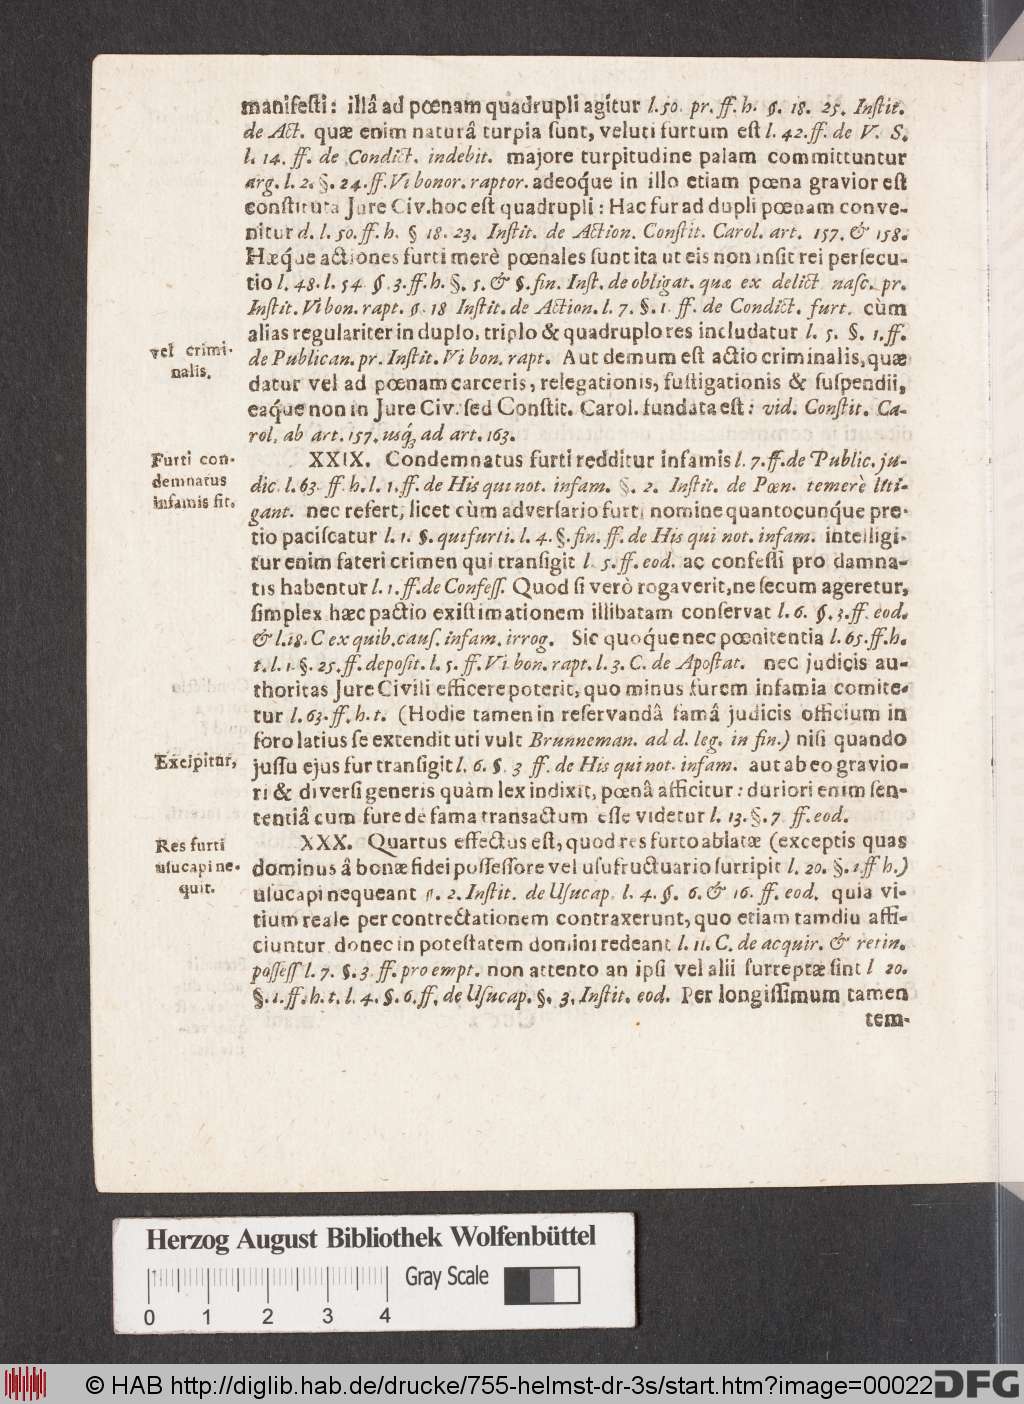 manifeſti: illâ ad pœnam quadrupli agitur l. 50. pr. ff. h. §. 18. 25. Inſtit.
de Act. quæ enim naturâ turpia ſunt, veluti furtum eſt l. 42. ff. de V. S.
l. 14. ff. de Condict. indebit. majore turpitudine palam committuntur
arg. l. 2. §. 24. ff. Vi bonor. raptor. adeoq́ue in illo etiam pœna gravior eſt
conſtituta Jure Civ. hoc eſt quadrupli: Hac fur ad dupli pœnam conve-
nitur d. l. 50. ff. h. § 18. 23. Inſtit. de Action. Conſtit. Carol. art. 157. & 158.
Hæq́ue actiones furti merè pœnales ſunt ita ut eis non inſit rei perſecu-
tio l. 48. l. 54 §. 3. ff. h. §. 5. & §. fin. Inſt. de obligat. quæ ex delict naſc. pr.
Inſtit. Vi bon. rapt. §. 18 Inſtit. de Action. l. 7. §. 1. ff. de Condict. furt. cùm
alias regulariter in duplo, triplo & quadruplo res includatur l. 5. §. 1. ff.
vel crimi-
nalis.
de Publican. pr. Inſtit. Vi bon. rapt. Aut demum eſt actio criminalis, quæ
datur vel ad pœnam carceris, relegationis, fuſtigationis & ſuſpendii,
eaq́ue non in Jure Civ. ſed Conſtit. Carol. fundata eſt: vid. Conſtit. Ca-
rol. ab art. 157. usq́; ad art. 163.
Furti con-
demnatus
infamis fit.
XXIX. Condemnatus furti redditur infamis l. 7. ff. de Public. ju-
dic. l. 63. ff. h. l. 1. ff. de His qui not. infam. §. 2. Inſtit. de Pœn. temerè liti-
gant. nec refert, licet cùm adverſario furti nomine quantocunq́ue pre-
tio paciſcatur l. 1. §. qui furti. l. 4. §. fin. ff. de His qui not. infam. intelligi-
tur enim fateri crimen qui tranſigit l. 5. ff. eod. ac confeſſi pro damna-
tis habentur l. 1. ff. de Confeſſ. Quod ſi verò rogaverit, ne ſecum ageretur,
ſimplex hæc pactio exiſtimationem illibatam conſervat l. 6. §. 3. ff. eod.
& l. 18. C ex quib. cauſ. infam. irrog. Sic quoq́ue nec pœnitentia l. 65. ff. h.
t. l. 1. §. 25. ff. depoſit. l. 5. ff. Vi bon. rapt. l. 3. C. de Apoſtat. nec judicis au-
thoritas Jure Civili efficere poterit, quo minus furem infamia comite-
tur l. 63. ff. h. t. (Hodie tamen in reſervandâ famâ judicis officium in
foro latius ſe extendit uti vult Brunneman. ad d. leg. in fin.) niſi quando
Excipitur,
juſſu ejus fur tranſigit l. 6. §. 3 ff. de His qui not. infam. aut ab eo gravio-
ri & diverſi generis quàm lex indixit, pœnâ afficitur: duriori enim ſen-
tentiâ cum fure de fama transactum eſſe videtur l. 13. §. 7 ff. eod.
Res furti
uſucapi ne-
quit.
XXX. Quartus effectus eſt, quod res furto ablatæ (exceptis quas
dominus â bonæ fidei poſſeſſore vel uſufructuario ſurripit l. 20. §. 1. ff h.)
uſucapi nequeant §. 2. Inſtit. de Uſucap. l. 4. §. 6. & 16. ff. eod. quia vi-
tium reale per contrectationem contraxerunt, quo etiam tamdiu affi-
ciuntur donec in poteſtatem domini redeant l. 11. C. de acquir. & retin.
poſſeſſ l. 7. §. 3 ff. pro empt. non attento an ipſi vel alii ſurreptæ ſint l 20.
§. 1. ff. h. t. l. 4. §. 6. ff. de Uſucap. §. 3. Inſtit. eod. Per longiſſimum tamen
tem-
Herzog August Bibliothek Wolfenbüttel
Gray Scale
0 1 2 3 4
© HAB http://diglib.hab.de/drucke/755-helmst-dr-3s/start.htm?image=00022
DFG